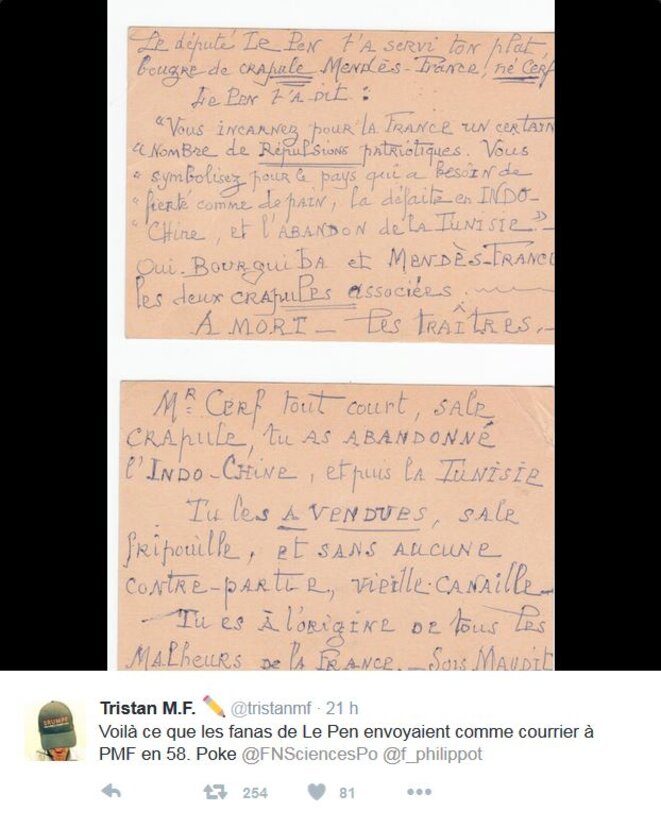 Le député Le Pen t'a servi ton plat,
bougre de crapule Mendès-France, né Cerf
Le Pen t'a dit :
"Vous incarnez pour la France un certain
" nombre de Répulsions patriotiques. Vous
" symbolisez pour le pays qui a besoin de
" fierté comme de pain, la défaite en INDO-
" Chine, et l'ABANDON de la TUNISIE."-
Oui. Bourguiba et Mendès-France
les deux crapules associées.
A MORT - les traîtres.-
Mr Cerf tout court, sale
crapule, tu as abandonné
l'INDO-Chine, et puis la Tunisie
Tu les a vendues, sale
fripouille, et sans aucune
contre-partie, vieille canaille-
- Tu es à l'origine de tous les
Malheurs de la France.- Sois Maudit
Tristan M.F. ✏️ @tristanmf · 21 h
Voilà ce que les fanas de Le Pen envoyaient comme courrier à
PMF en 58. Poke @FNSciencesPo @f_philippot
254 81